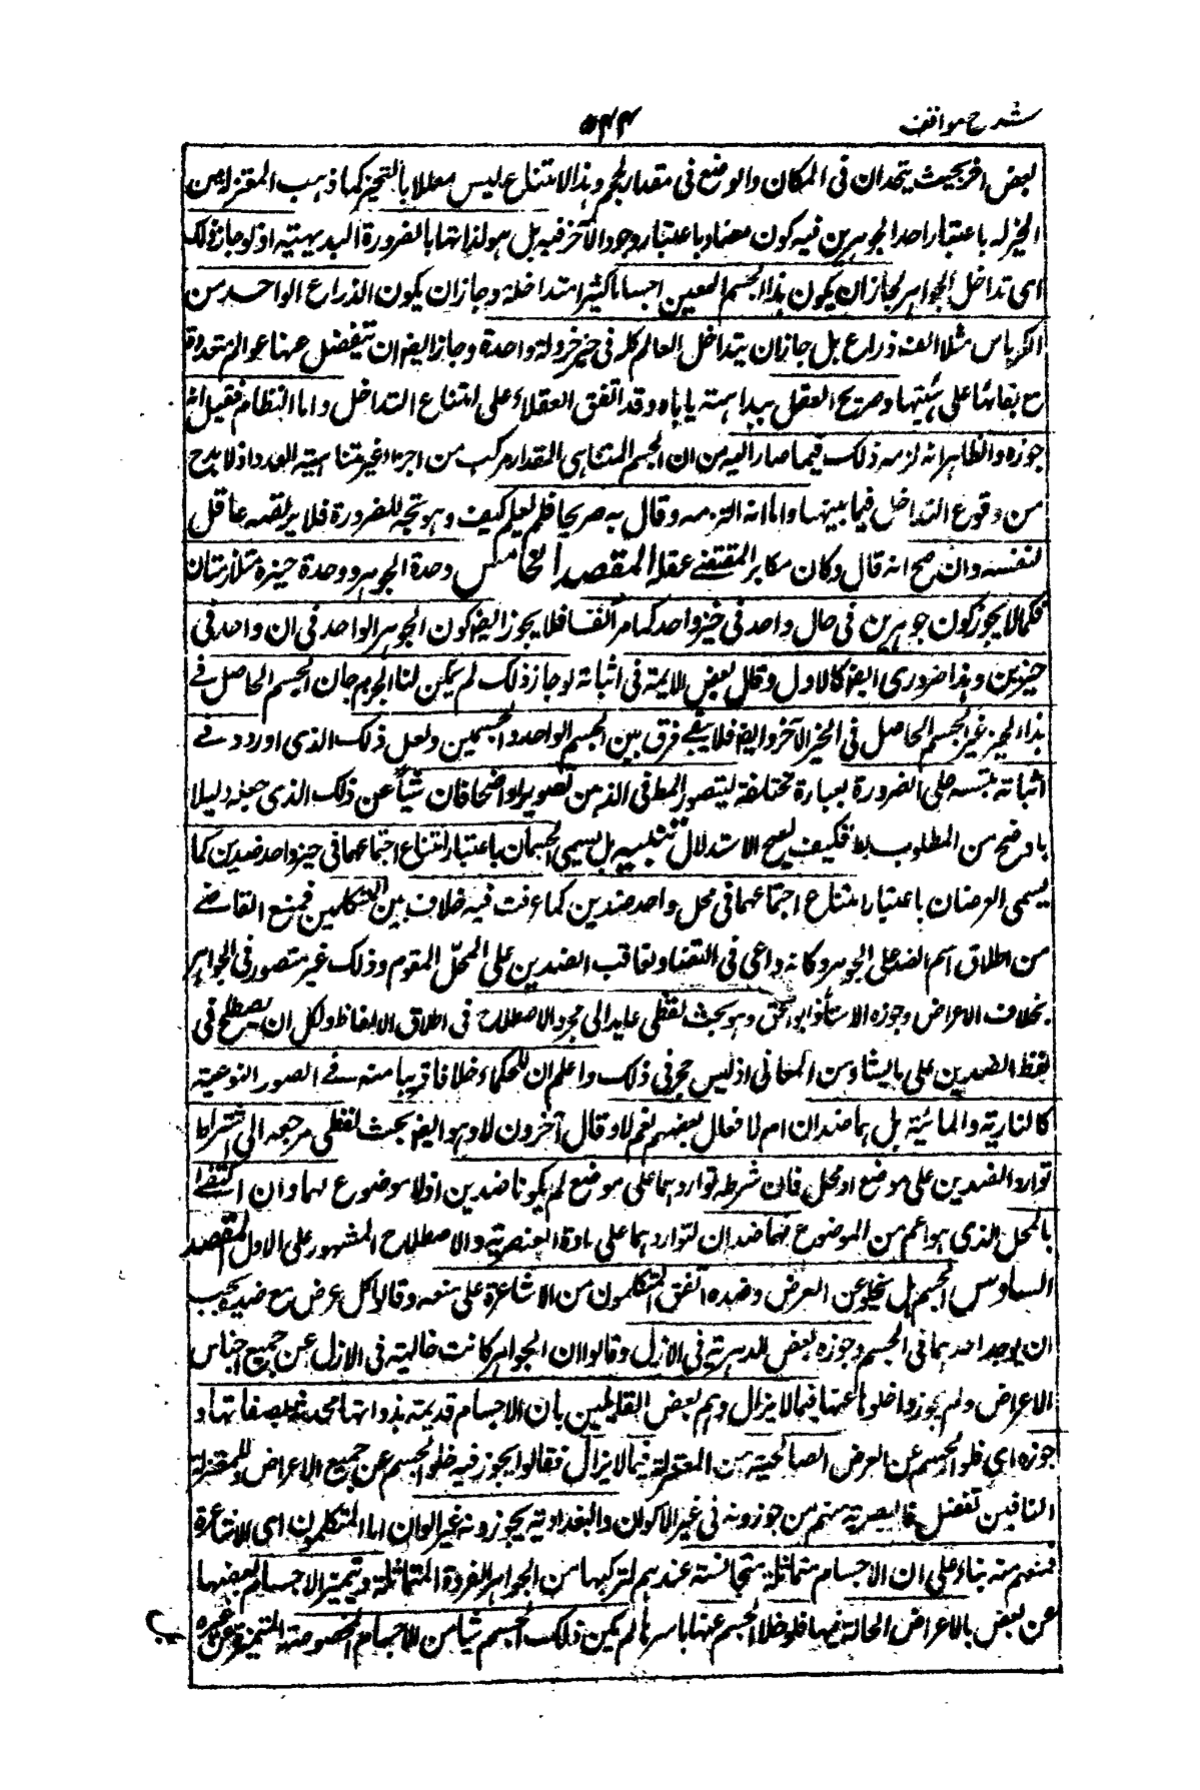 شرح مواقف
۵۴۴
بعض اخر بحيث يتحدان فى المكان والوضع فى مقدار الحجم وهذا الامتناع ليس معللا بالتحيز كما ذهب المعتزلة من
الحيز له باعتبار احد الجوهرين فيه كون مضاد باعتبار وجود الآخر فيه بل هو لذاتها بالضرورة البديهية اذ لو جاز ذلك
اى تداخل الجواهر لجاز ان يكون هذا الجسم المعين اجساما كثيرة متداخلة وجاز ان يكون الذراع الواحد من
الكرباس مثلا الف ذراع بل جاز ان يتداخل العالم كله فى حيز خردلة واحدة وجاز ايضا ان تنفصل عنها عوالم متعددة
مع بقائها على هيئتها وصريح العقل ببداهته ياباه وقد اتفق العقلاء على امتناع التداخل واما النظام فقيل انه
جوزه والظاهر انه لزمه ذلك فيما صار اليه من ان الجسم المتناهى المقدار مركب من اجزاء غير متناهية العدد اذ لا بد ح
من وقوع التداخل فيما بينها واما انه التزمه وقال به صريحا فلم يعلم كيف وهو تجه للضرورة فلا يرتضيه عاقل
لنفسه وان صح انه قال وكان مكابرا لمقتضى عقله المقصد الخامس وحدة الجوهر ووحدة حيزه متلازمتان
فكما لا يجوز كون جوهرين فى حال واحد فى حيز واحد كما مر آنفا فلا يجوز ايضا كون الجوهر الواحد فى ان واحد فى
حيزين وهذا ضرورى ايضا كالاول وقال بعض الايمة فى اثباته لو جاز ذلك لم يمكن لنا الجزم بان الجسم الحاصل فى
هذا الحيز غير الجسم الحاصل فى الحيز الآخر وايضا فلا يبقى فرق بين الجسم الواحد والجسمين ولعل ذلك الذى اورده فى
اثباته تنبيه على الضرورة بعبارة مختلفة ليتصور المط فى الذهن تصويرا واضحا فان شيأ عن ذلك الذى جعله دليلا
با وضح من المطلوب بط فكيف يصح الاستدلال تنبيه بل يسمى الجسمان باعتبار امتناع اجتماعهما فى حيز واحد ضدين كما
يسمى العرضان باعتبار امتناع اجتماعهما فى محل واحد ضدين كما عرفت فيه خلاف بين المتكلمين فمنع القاضى
من اطلاق اسم الضد على الجوهر وكانه راعى فى التضاد تعاقب الضدين على المحل المقوم وذلك غير متصور فى الجواهر
بخلاف الاعراض وجوزه الاستاذ ابو اسحق وهو بحث لفظى عايد الى مجرد الاصطلاح فى اطلاق الالفاظ ولكل ان يصطلح فى
لفظ الضدين على ما يشاء من المعانى اذ ليس حجر فى ذلك واعلم ان للحكماء خلافا قريبا منه فى الصور النوعية
كالنارية والمائية بل هما ضدان ام لا فقال بعضهم نعم لا وقال آخرون لا وهو ايضا بحث لفظى مرجعه الى اشتراط
توارد الضدين على موضع او محل فان شرط تواردهما على موضع لم يكونا ضدين اذ لا موضوع لهما وان اكتفى
بالمحل الذى هو اعم من الموضوع فهما ضدان لتواردهما على مادة العنصرية والاصطلاح المشهور على الاول المقصد
السادس الجسم هل يخلو عن العرض وضده اتفق المتكلمون من الاشاعرة على منعه وقالوا كل عرض مع ضده يجب
ان يوجد احدهما فى الجسم وجوزه بعض الدهرية فى الازل وقالوا ان الجواهر كانت خالية فى الازل عن جميع اجناس
الاعراض ولم يجوزوا خلوها عنها فيما لا يزال وهم بعض القايلين بان الاجسام قديمة بذواتها محدثة بصفاتها و
جوزه اى خلو الجسم عن العرض الصالحية من المعتزلة فيما لا يزال فقالوا يجوز فيه خلو الجسم عن جميع الاعراض وللمعتزلة
النافين تفصيل فالبصرية منهم من جوزونه فى غير الاكوان والبغدادية يجوزونه غير الوان اما المتكلمون اى الاشاعرة
فمنعهم منه بناء على ان الاجسام متماثلة متجانسة عندهم لتركبها من الجواهر الفردة المتماثلة وتميز الاجسام بعضها
عن بعض بالاعراض الحالة فيها فلو خلا الجسم عنها باسرها لم يكن ذلك الجسم شيأ من الاجسام المخصوصة المتميزة عن غيره